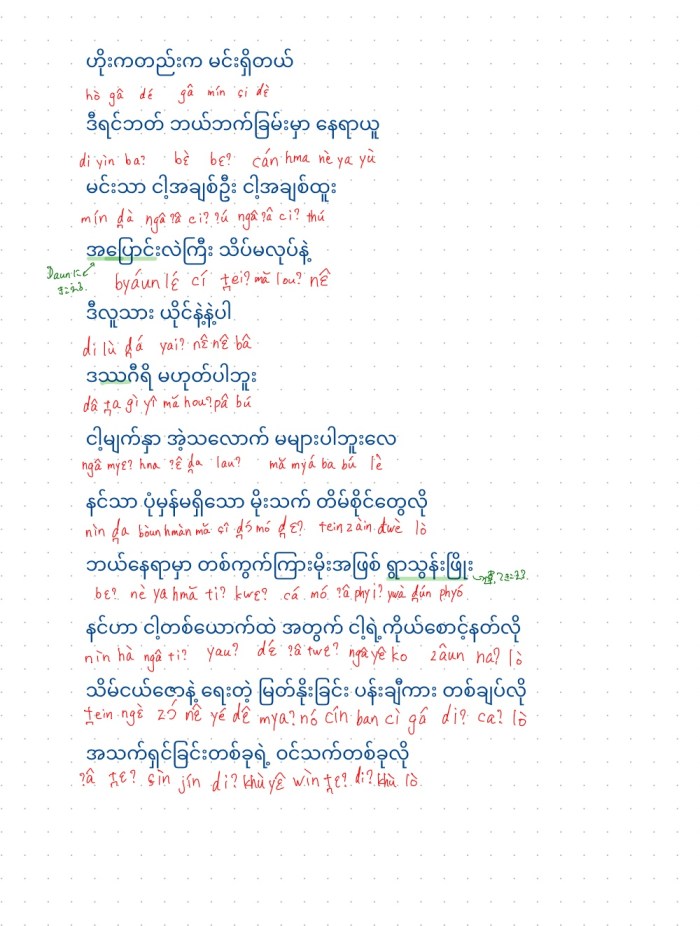 ဟိုးကတည်းက မင်းရှိတယ်
hò gâ dé gâ mín çi dὲ
ဒီရင်ဘတ် ဘယ်ဘက်ခြမ်းမှာ နေရာယူ
di yìn ba? bὲ bɛ? cán hma nè ya yù
မင်းသာ ငါ့အချစ်ဦး ငါ့အချစ်ထူး
mín d̪à ngâ ?â ci? ?ú ngâ ?â ci? thú
အပြောင်းလဲကြီး သိပ်မလုပ်နဲ့
byáun lɛ́ cí t̪ei? mă lou? nɛ̂
ဒီလူသား ယိုင်နဲ့နဲ့ပါ
di lù d̪á yai? nɛ̂ nɛ̂ bâ
ဒဿဂီရိ မဟုတ်ပါဘူး
dâ t̪a gì yî mă hou? pâ bú
ငါ့မျက်နှာ အဲ့သလောက် မများပါဘူးလေ
ngâ myɛ? hna ?ɛ̂ d̪a lau? mă myá ba bú lè
နင်သာ ပုံမှန်မရှိသော မိုးသက် တိမ်စိုင်တွေလို
nìn d̪a bòun hmàn mă çî d̪ɔ́ mó d̪ɛ? tein zàin dwè lò
ဘယ်နေရာမှာ တစ်ကွက်ကြားမိုးအဖြစ် ရွာသွန်းဖြိုး
bɛ? nè ya hmă ti? kwɛ? cá mó ?â phyi? ywà d̪ún phyó
နင်ဟာ ငါ့တစ်ယောက်ထဲ အတွက် ငါ့ရဲ့ကိုယ်စောင့်နတ်လို
nìn hà ngâ ti? yau? dɛ́ ?â twɛ? ngâ yɛ̂ ko zâun na? lò
သိမ်ငယ်ဇောနဲ့ ရေးတဲ့ မြတ်နိုးခြင်း ပန်းချီကား တစ်ချပ်လို
t̪ein ngὲ zɔ́ nɛ̂ yé dɛ̂ mya? nó cín ban cì gá di? ca? lò
အသက်ရှင်ခြင်းတစ်ခုရဲ့ ဝင်သက်တစ်ခုလို
?â t̪ɛ? sìn jín di? khù yɛ̂ wìn t̪ɛ? di? khù lò